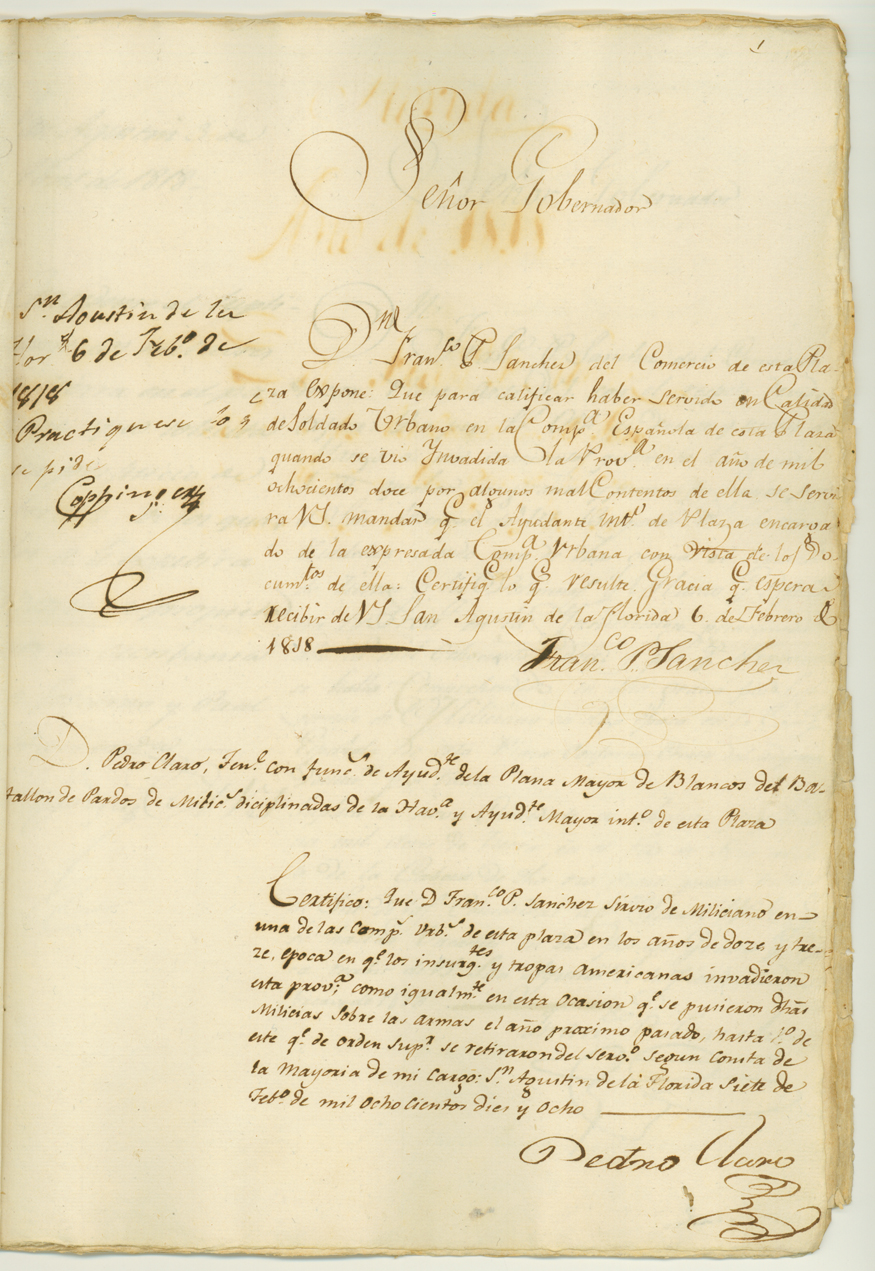 1
Señor Gobernador
Sn. Agustin de la
Flora 6 de Febo. de
1818
Practiquese lo q
se pide
Coppinger
Dn. Franco. P. Sanchez del Comercio de esta Pla-
za expone: Que para calificar haber servido en Calidad
de Soldado Urbano en la Compa. Española de esta Plaza
quando se vio Ynvadida la Prova. en el año de mil
ochocientos doce por algunos mal Contentos de ella se servi
ra VS. mandar q. el Ayudante Into. de Plaza encarga
do de la expresada Compa. Urbana con vista de los Do-
cumtos. de ella: Certifiq. lo q. resulte. Gracia q. espera
recibir de VS San Agustin de la Florida 6. de Febrero de
1818
Franco. P. Sanchez
D. Pedro Claro, Tene. con funcs. de Ayude. de la Plana Mayor de Blancos del Ba-
tallon de Pardos de Milics. diciplinadas de la Hava. y Ayudte. Mayor into. de esta Plaza
Certifico: Que D Franco. P. Sanchez sirvio de Miliciano en
una de las Comps. Urbs. de esta plaza en los años de doze y tre-
ze, epoca en qe. los insurgtes. y tropas americanas invadieron
esta prova. como igualmte. en esta ocasion qe. se pusieron dhas
Milicias sobre las armas el año proximo pasado, hasta 1o. de
este qe. de orden supr. se retiraron del servo. segun consta de
la Mayoria de mi cargo: Sn. Agustin de la Florida siete de
Febo. de mil ochocientos dies y ocho
Pedro Claro